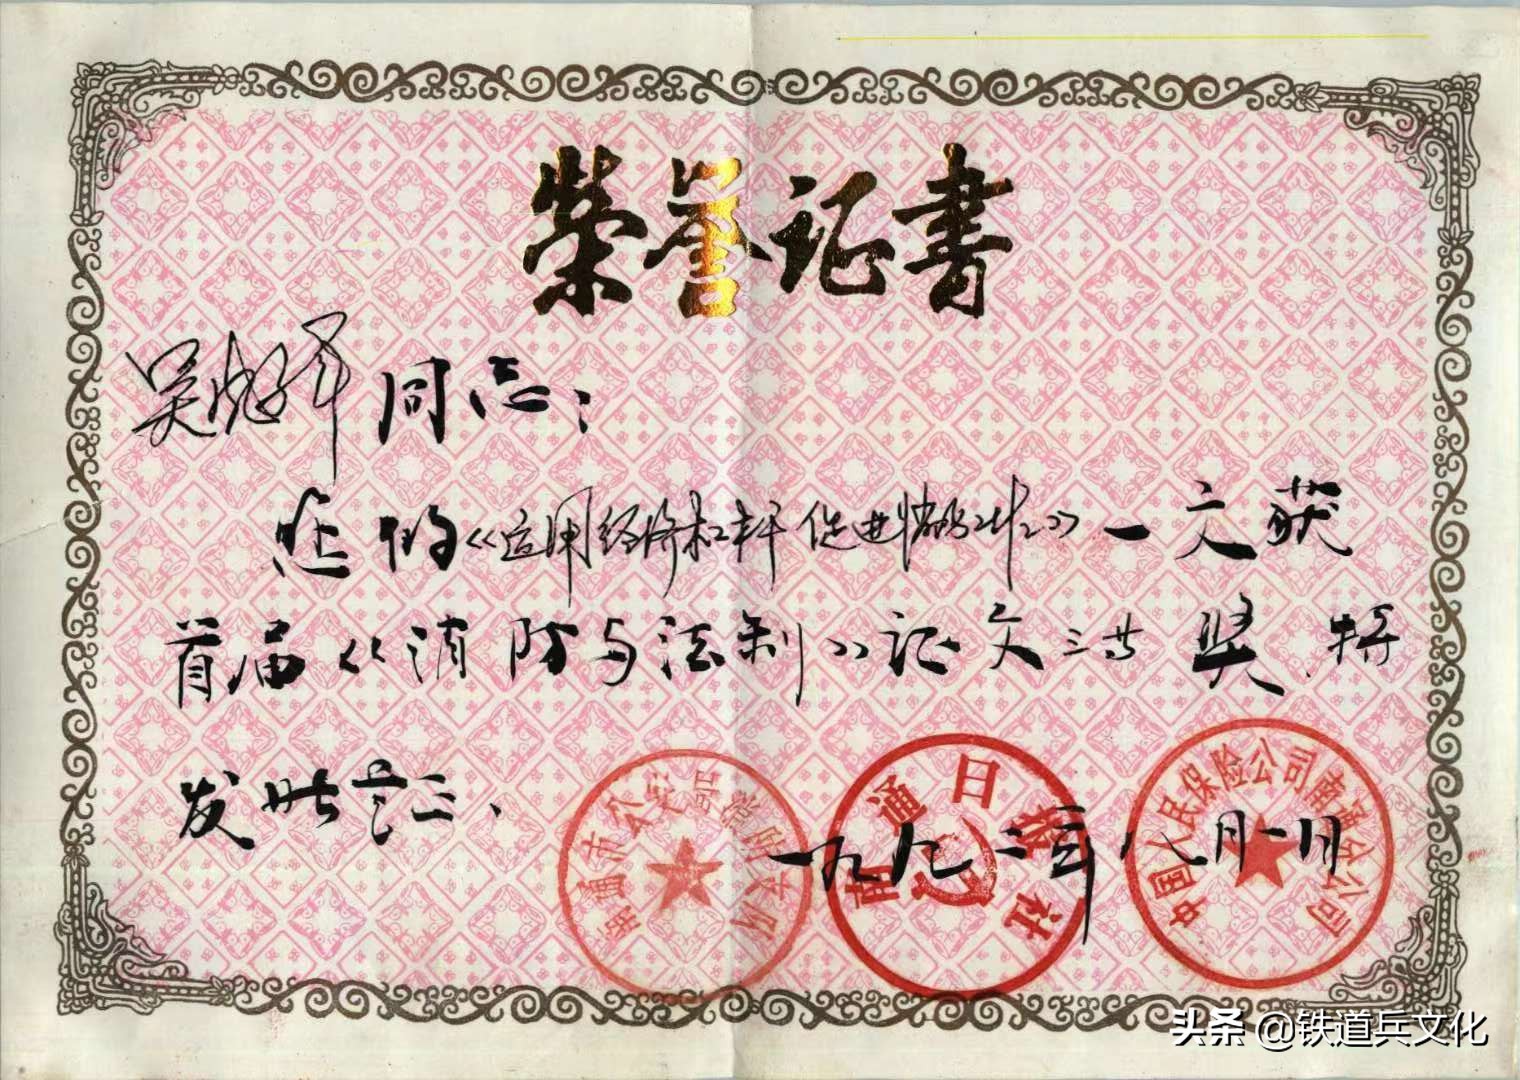 荣誉证书
吴 同志：
您的《运用经济杠杆 促进 》一文获
首届《消防与法制》证文三等奖、特
发此 、
一九九二年八月一日
南通市公安局消防大队
南通日报社
中国人民保险公司南通分公司
头条 @铁道兵文化